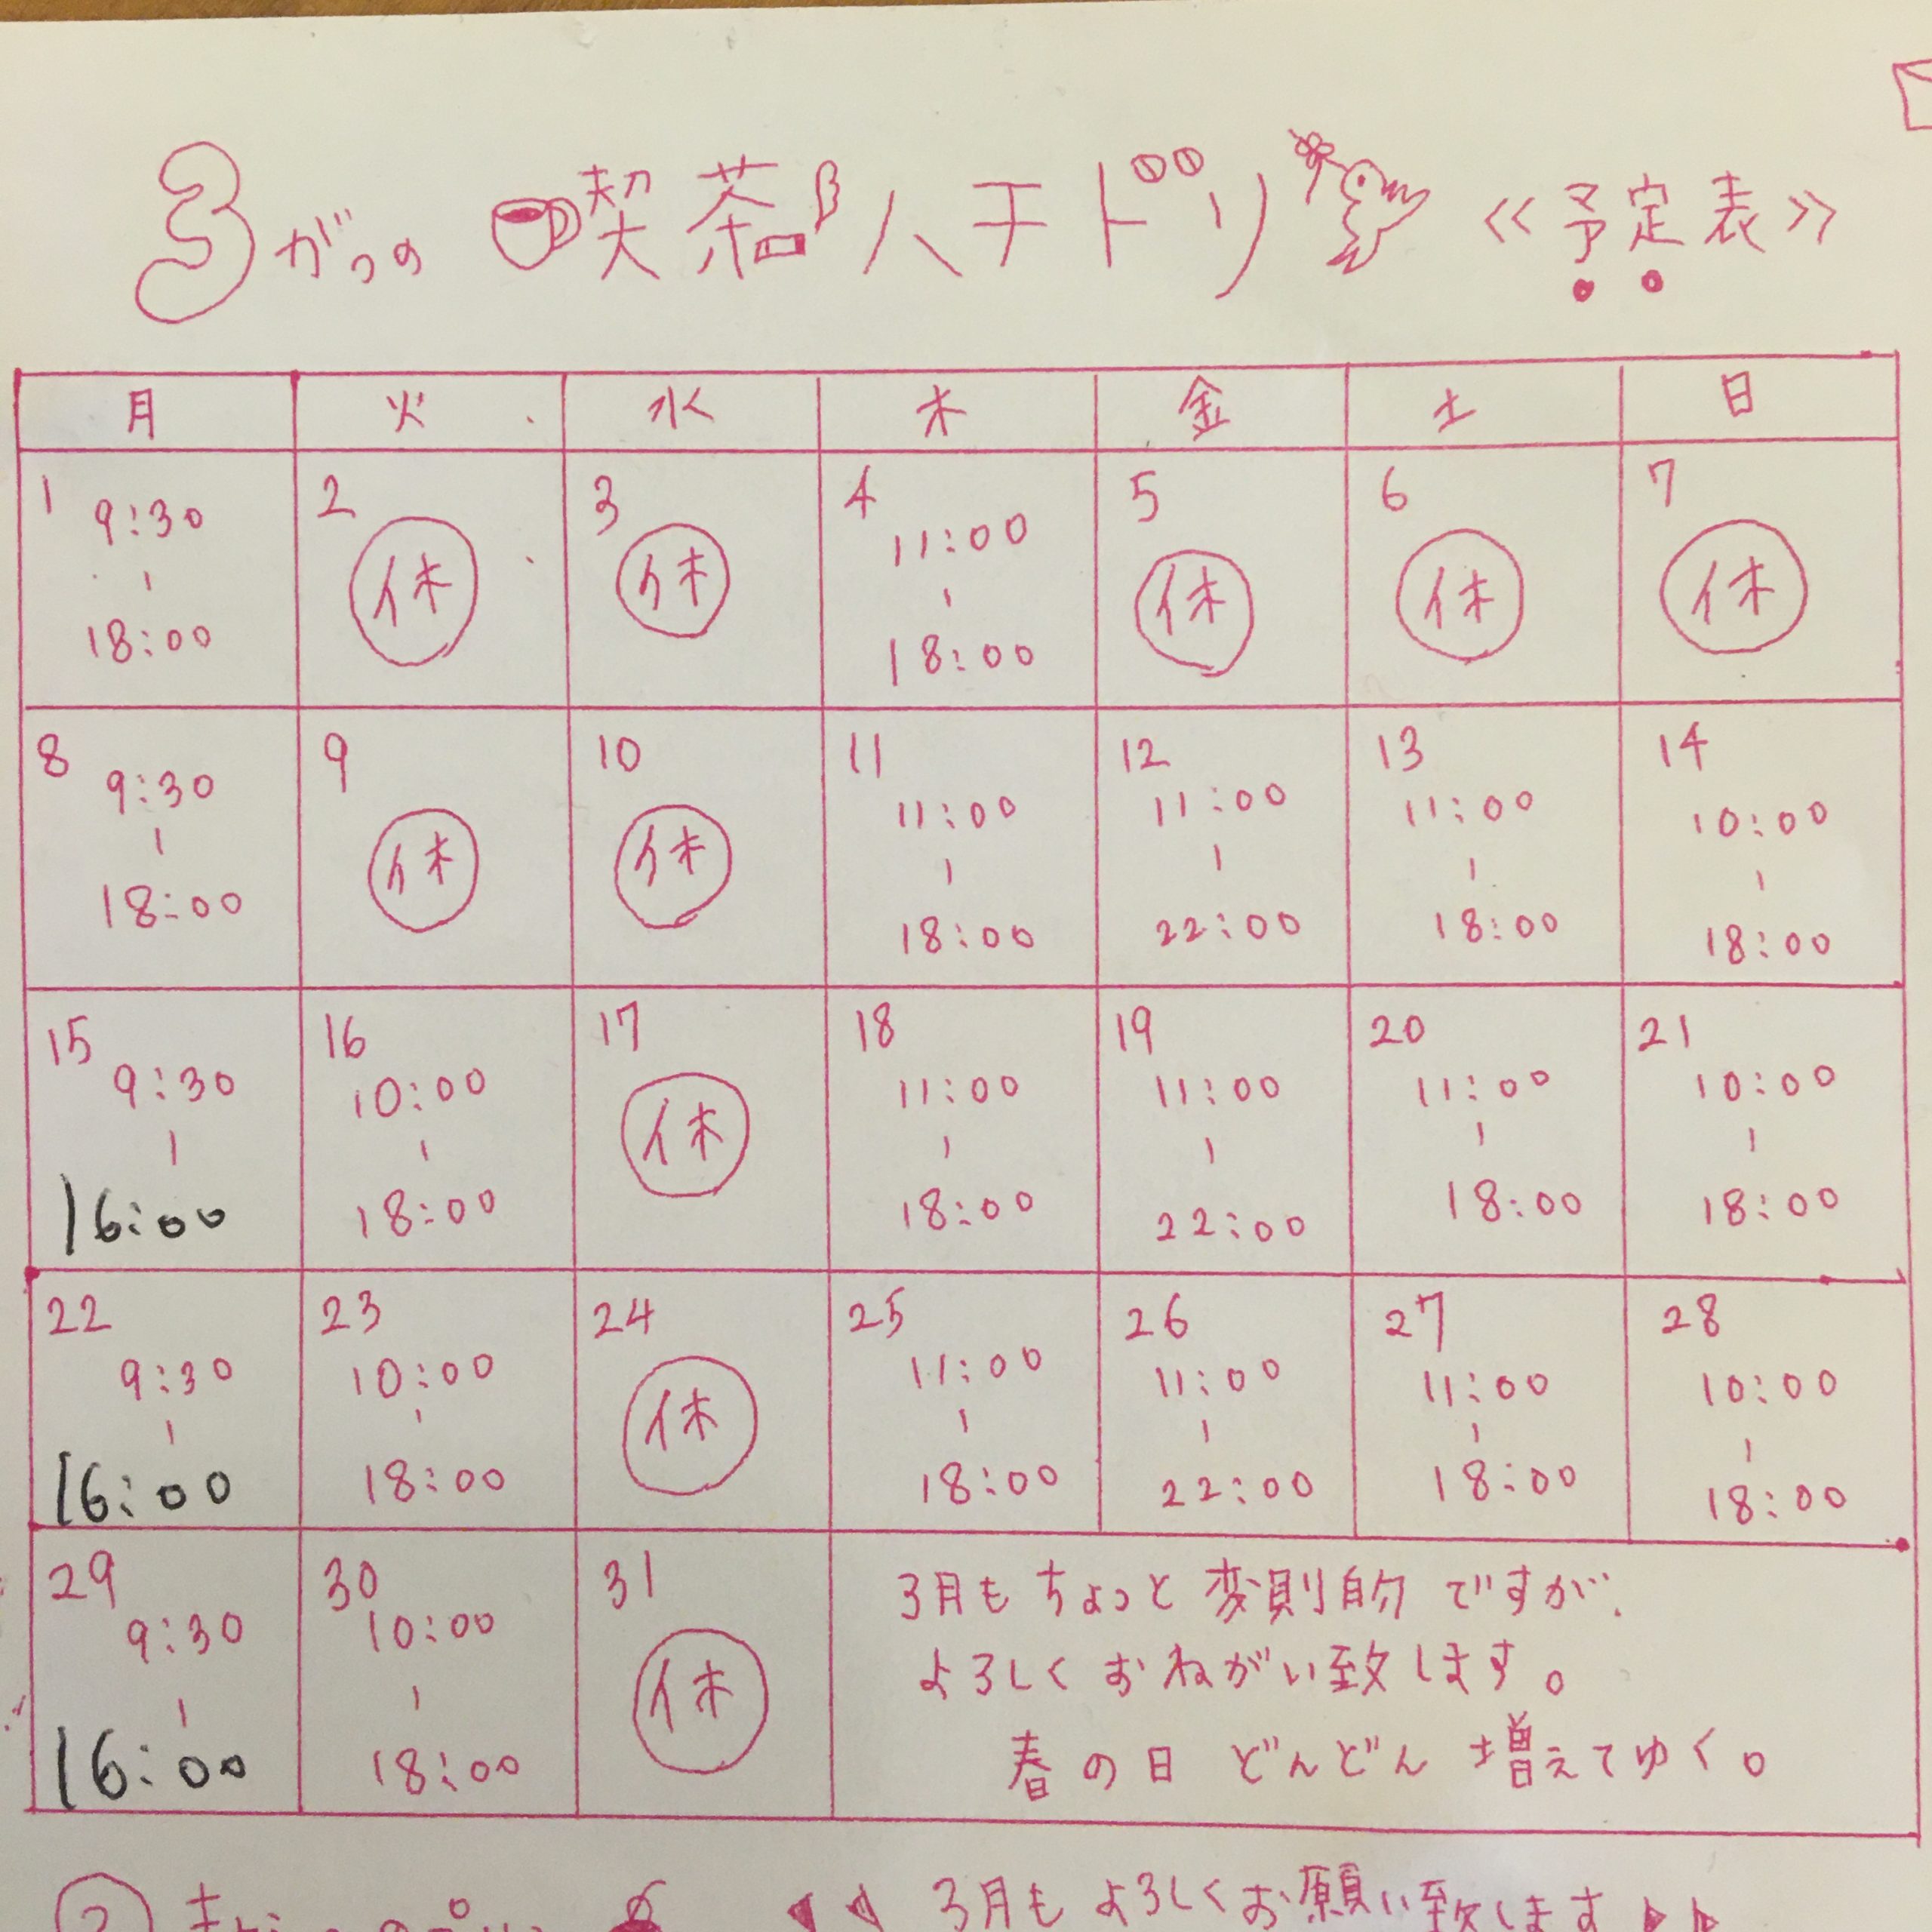 3がつの 喫茶ハチドリ 《予定表》
月 火 水 木 金 土 日
1 2 3 4 5 6 7
9:30 - 18:00 休 休 11:00 - 18:00 休 休 休
8 9 10 11 12 13 14
9:30 - 18:00 休 休 11:00 - 18:00 11:00 - 22:00 11:00 - 18:00 10:00 - 18:00
15 16 17 18 19 20 21
9:30 - 16:00 10:00 - 18:00 休 11:00 - 18:00 11:00 - 22:00 11:00 - 18:00 10:00 - 18:00
22 23 24 25 26 27 28
9:30 - 16:00 10:00 - 18:00 休 11:00 - 18:00 11:00 - 22:00 11:00 - 18:00 10:00 - 18:00
29 30 31
9:30 - 16:00 10:00 - 18:00 休
3月もちょっと変則的ですが、
よろしくおねがい致します。
春の日 どんどん増えてゆく。
3月もよろしくお願い致します